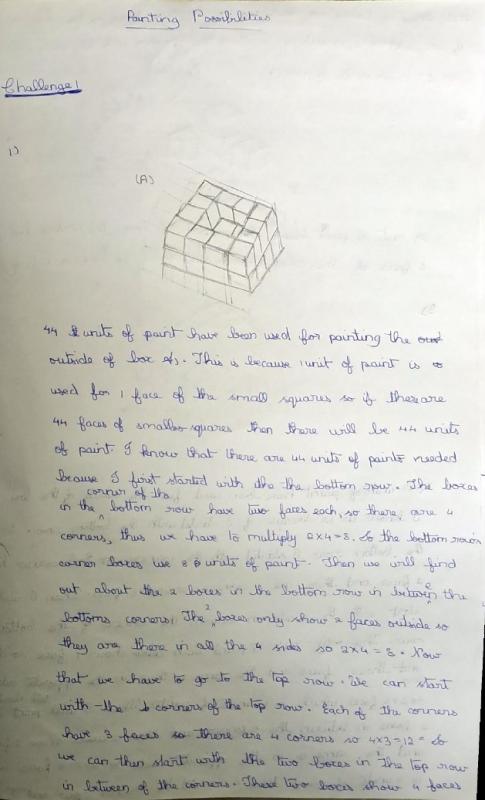 Painting Possibilities
Challenge 1
1)
(A)
44 units of paint have been used for painting the
outside of box A). This is because 1 unit of paint is
used for 1 face of the small squares so if there are
44 faces of smaller squares then there will be 44 units
of paint. I know that there are 44 units of paints needed
because I first started with the the bottom row. The boxes
corner of the
in the bottom row have two faces each, so there are 4
corners, thus we have to multiply 2x4=8. So the bottom row's
corner boxes use 8 units of paint. Then we will find
out about the 2 boxes in the bottom row in between the
bottoms corners. The 2 boxes only show 2 faces outside so
they are there in all the 4 sides so 2x4 = 8. Now
that we have to go to the top row. We can start
with the corners of the top row. Each of the corners
have 3 faces so there are 4 corners so 4x3=12= So
we can then start with the two boxes in the top row
in between of the corners. These two boxes show 4 faces